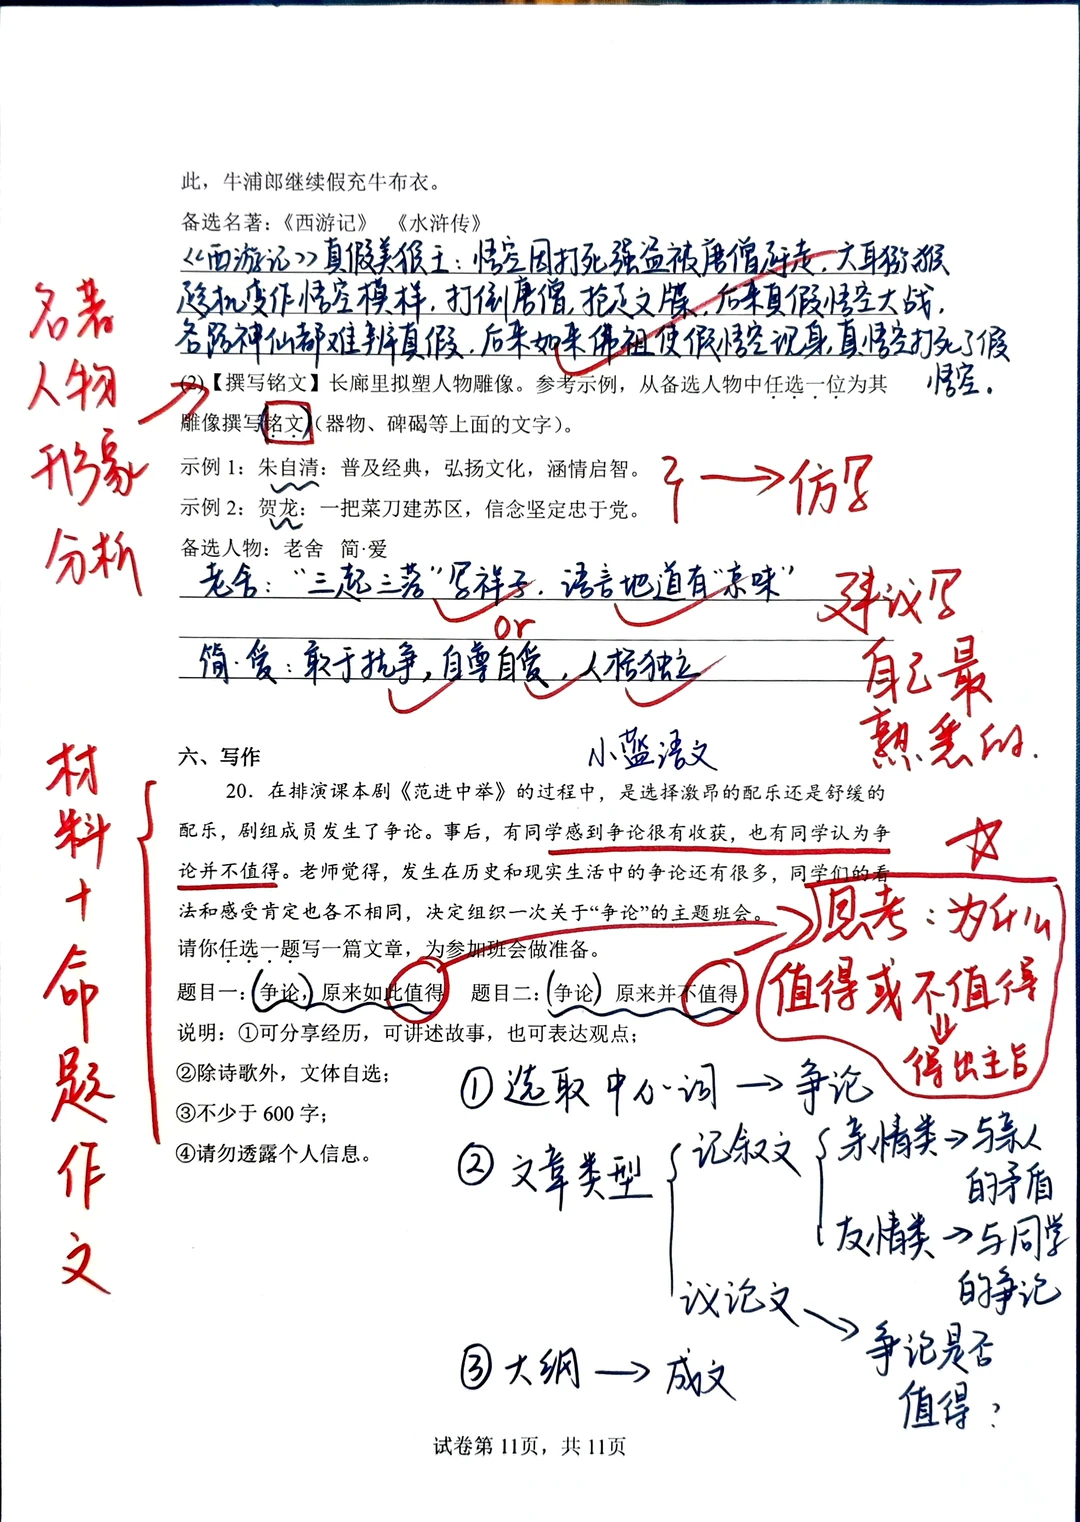 此，牛浦郎继续假充牛布衣。
备选名著：《西游记》 《水浒传》
《西游记》真假美猴王：悟空因打死强盗被唐僧赶走，六耳猕猴
趁机变作悟空模样，打倒唐僧，抢走文牒，后来真假悟空大战，
各路神仙都难辨真假，后来如来佛祖使假悟空现身，真悟空打死了假
悟空。
名著
人物
形象
分析
(2)【撰写铭文】长廊里拟塑人物雕像。参考示例，从备选人物中任选一位为其
雕像撰写铭文（器物、碑碣等上面的文字）。
示例 1：朱自清：普及经典，弘扬文化，涵情启智。
示例 2：贺龙：一把菜刀建苏区，信念坚定忠于党。
→仿写
备选人物：老舍 简·爱
老舍：“三起三落”写祥子，语言地道有“京味”
or
简·爱：敢于抗争，自尊自爱，人格独立
建议写
自己最
熟悉的.
六、写作
小蓝语文
材料+命题作文
20．在排演课本剧《范进中举》的过程中，是选择激昂的配乐还是舒缓的
配乐，剧组成员发生了争论。事后，有同学感到争论很有收获，也有同学认为争
论并不值得。老师觉得，发生在历史和现实生活中的争论还有很多，同学们的看
法和感受肯定也各不相同，决定组织一次关于“争论”的主题班会。
请你任选一题写一篇文章，为参加班会做准备。
题目一：争论，原来如此值得 题目二：争论，原来并不值得
思考：为什么
值得或不值得
⇓
得出主旨
说明：①可分享经历，可讲述故事，也可表达观点；
②除诗歌外，文体自选；
③不少于 600 字；
④请勿透露个人信息。
①选取中心词→争论
②文章类型
记叙文
亲情类→与亲人
的矛盾
友情类→与同学
的争论
议论文→争论是否
值得？
③大纲→成文
试卷第 11页，共 11页